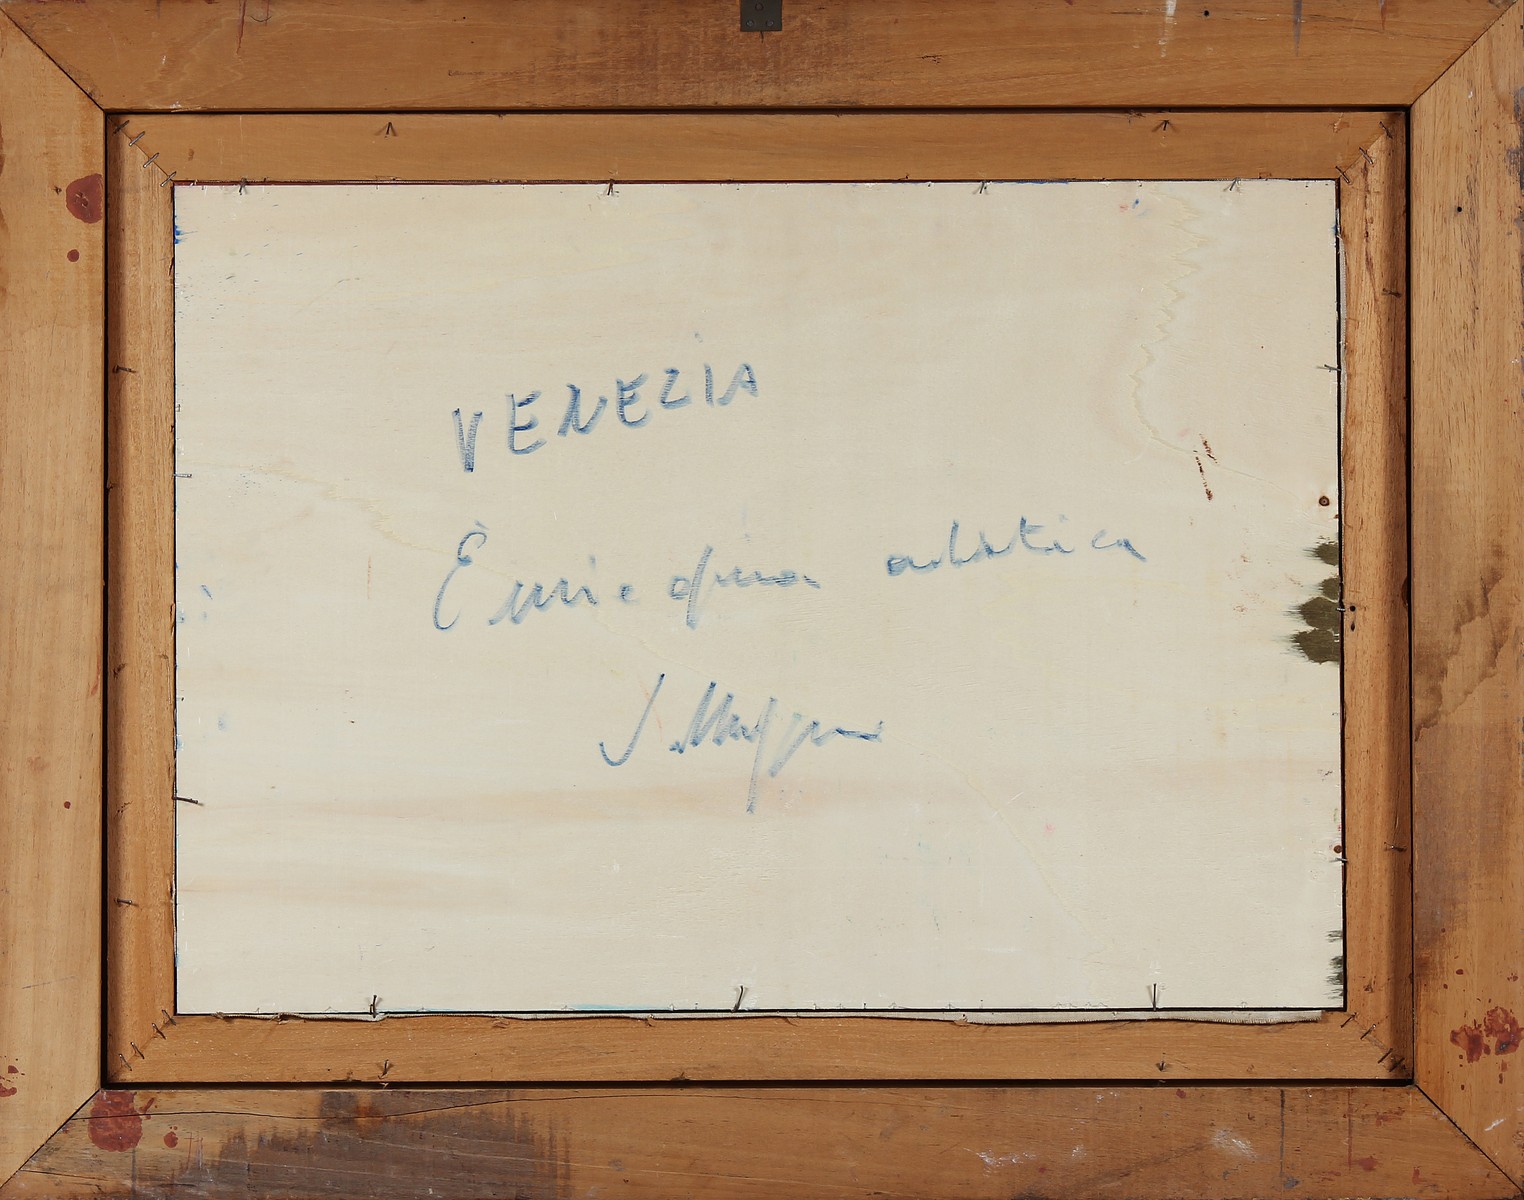 VENEZIA
È mia opera artistica